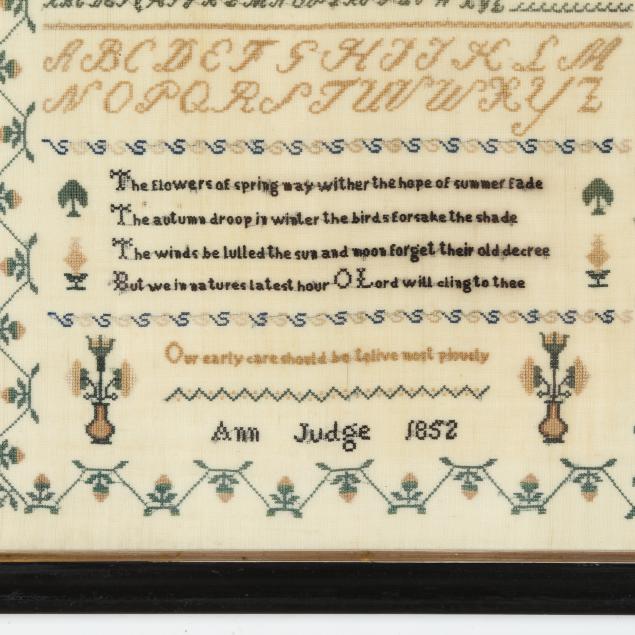 A B C D E F G H I J K L M
N O P Q R S T U V W X Y Z
The flowers of spring may wither the hope of summer fade
The autumn droop in winter the birds forsake the shade
The winds be lulled the sun and moon forget their old decree
But we in natures latest hour O Lord will cling to thee
Our early care should be to live most piously
Ann Judge 1852